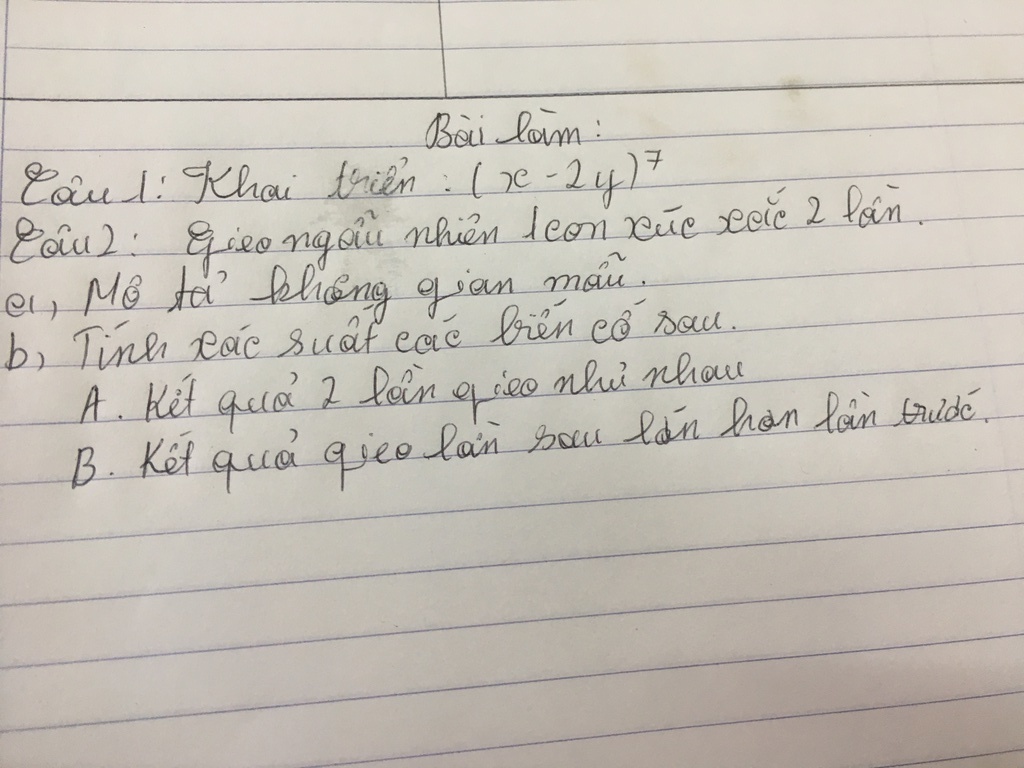 Bài làm:
Câu 1: Khai triển: (x - 2y)⁷
Câu 2: Gieo ngẫu nhiên 1 con xúc xắc 2 lần.
a, Mô tả không gian mẫu.
b, Tính xác suất các biến cố sau.
A. Kết quả 2 lần gieo như nhau
B. Kết quả gieo lần sau lớn hơn lần trước.